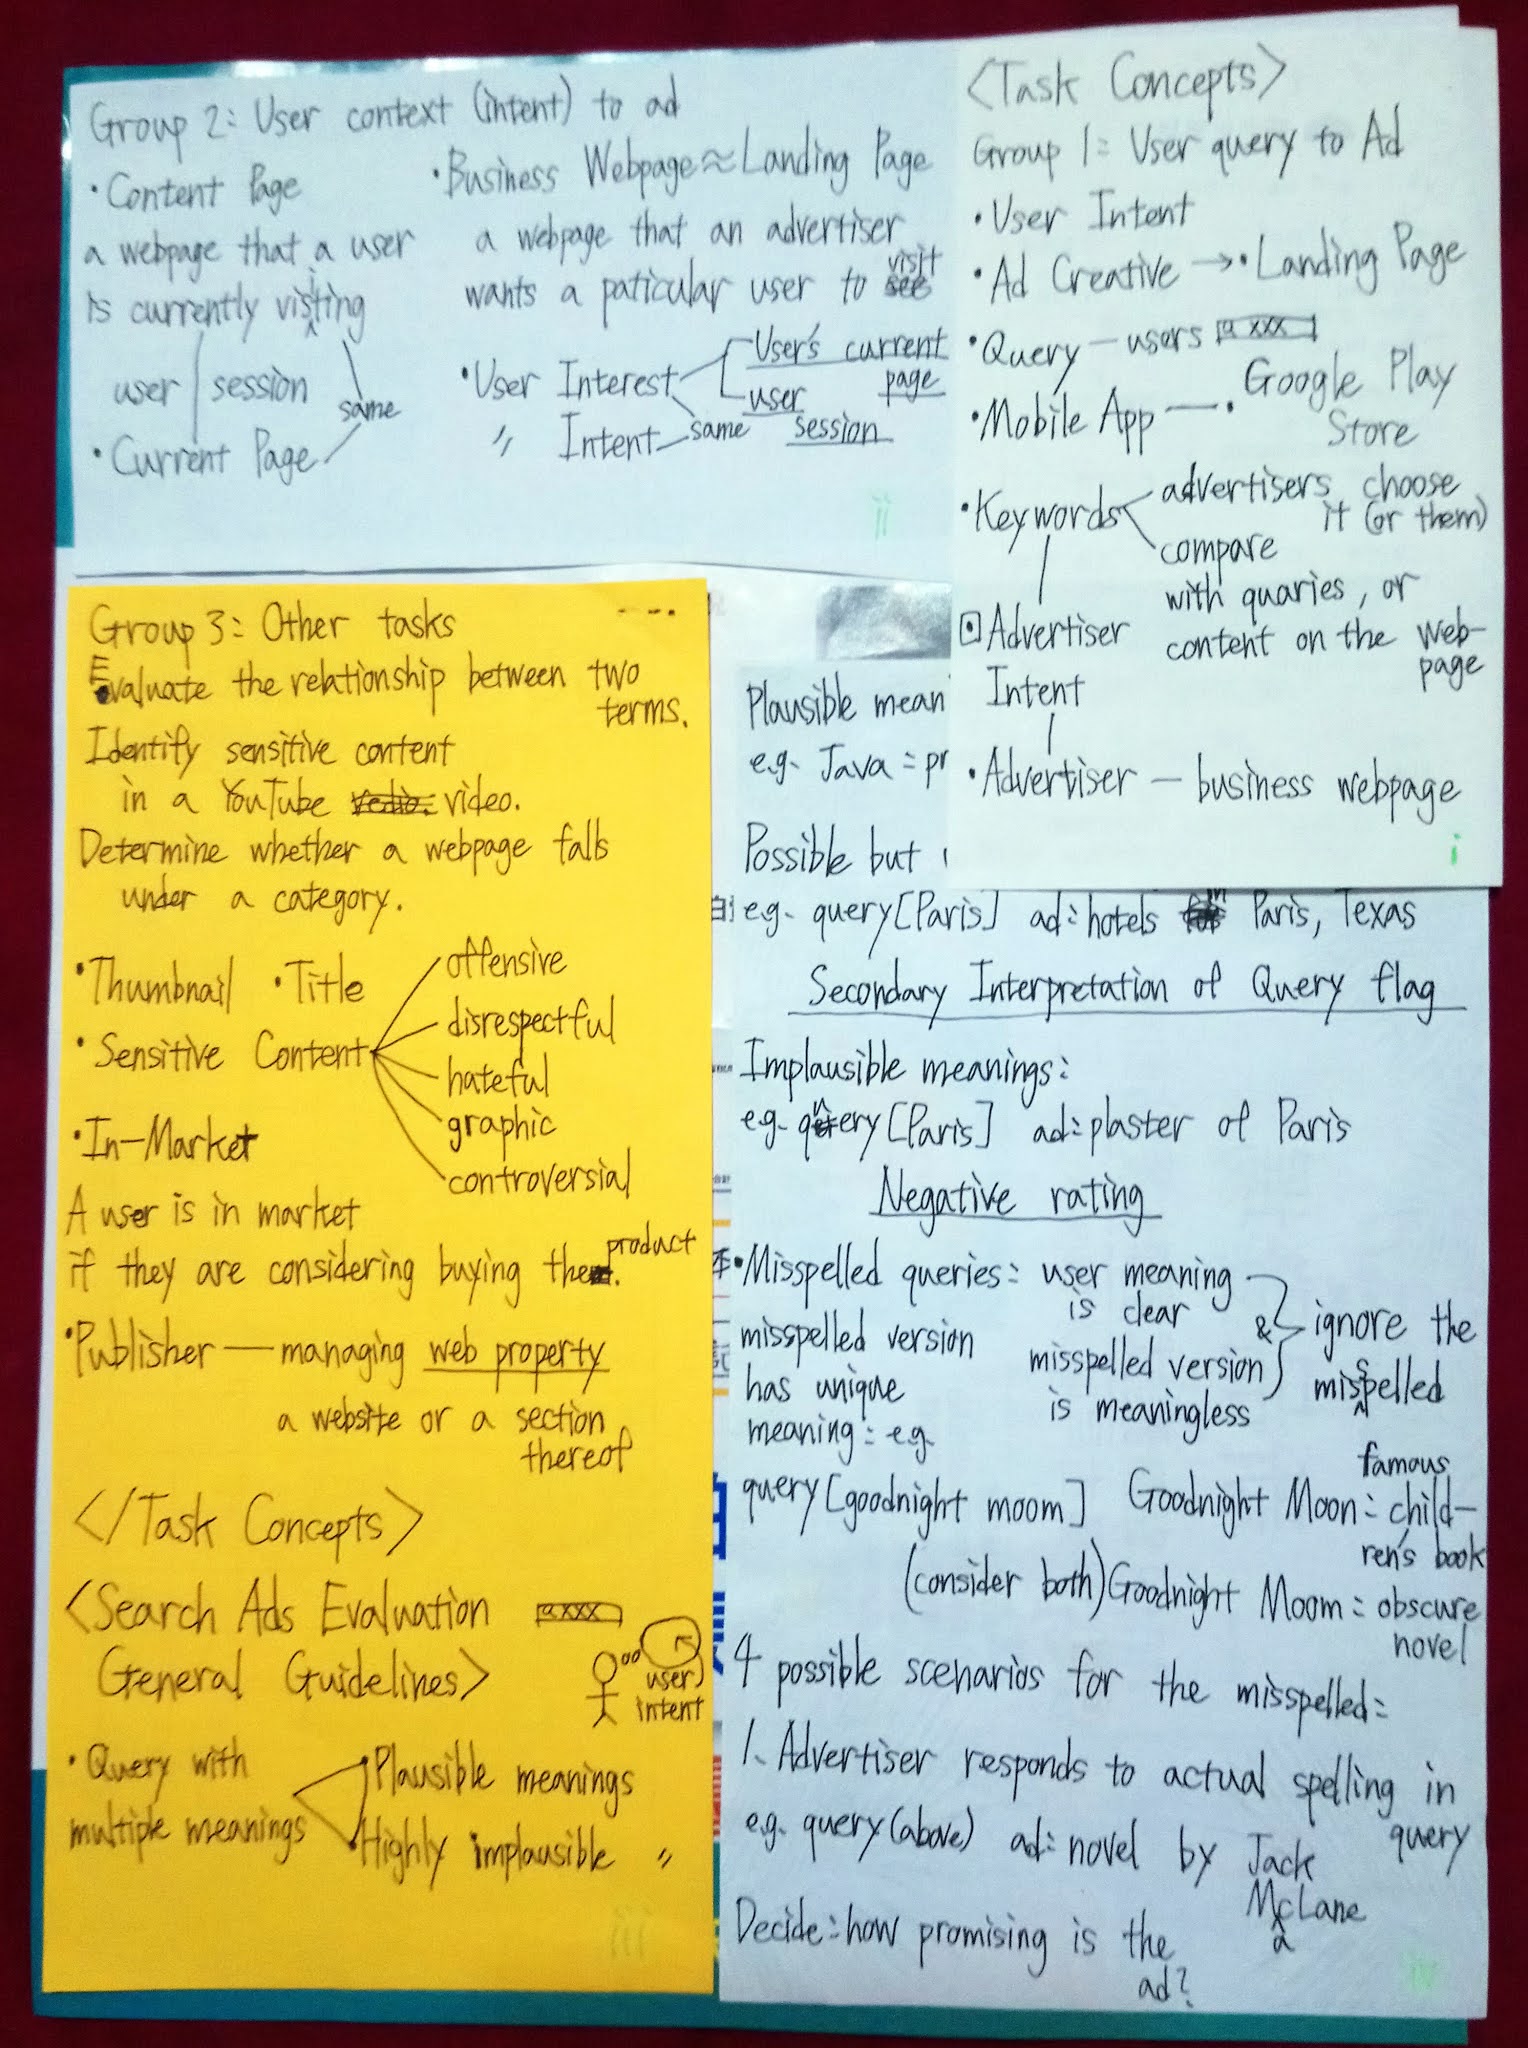 <Task Concepts>
Group 1: User query to Ad
• User Intent
• Ad Creative → • Landing Page
• Query — users a xxx
• Mobile App — • Google Play
Store
• Keywords
advertisers choose
it (or them)
compare
with quaries, or
content on the web-
page
Advertiser
Intent
• Advertiser — business webpage
i
Group 2: User context (intent) to ad
• Content Page
a webpage that a user
is currently visiting
user session
same
• Current Page
• Business Webpage ≈ Landing Page
a webpage that an advertiser
wants a paticular user to see visit
• User Interest
User's current
page
user
session
〃 Intent same
ii
Group 3: Other tasks
Evaluate the relationship between two
terms.
Identify sensitive content
in a YouTube vedio. video.
Determine whether a webpage falls
under a category.
• Thumbnail • Title
• Sensitive Content
offensive
disrespectful
hateful
graphic
controversial
• In-Market
A user is in market
if they are considering buying the product.
• Publisher — managing web property
a website or a section
thereof
</Task Concepts>
<Search Ads Evaluation a xxx
General Guidelines>
user
intent
• Query with
multiple meanings
• Plausible meanings
• Highly implausible 〃
iii
Plausible mean
e.g. Java = pr
Possible but
e.g. query [Paris] ad: hotels in Paris, Texas
Secondary Interpretation of Query flag
Implausible meanings:
e.g. query [Paris] ad: plaster of Paris
Negative rating
• Misspelled queries: user meaning
is clear
&
misspelled version
is meaningless
ignore the
misspelled
misspelled version
has unique
meaning: e.g.
query [goodnight moom] Goodnight Moon = famous
child-
ren's book
(consider both) Goodnight Moom = obscure
novel
4 possible scenarios for the misspelled:
1. Advertiser responds to actual spelling in
query
e.g. query (above) ad: novel by Jack
MacLane
Decide: how promising is the
ad?
iv